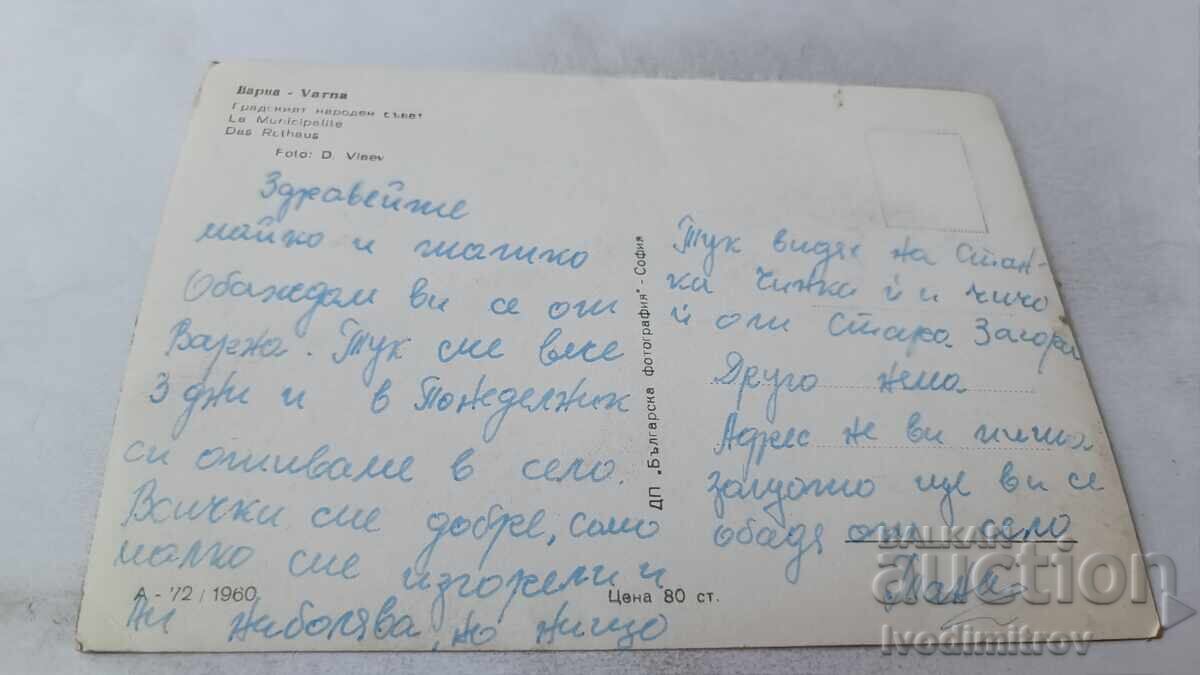 Варна - Varna
Градският народен съвет
La Municipalite
Das Rathaus
Foto: D. Vlaev
Здравейте
майко и татико
Обаждам ви се от
Варна. Тук сме вече
3 дни и в Понеделник
си отиваме в село.
Всички сме добре, само
малко сме изгорели и
ни наболява, но нищо
A - 72 / 1960
Цена 80 ст.
ДП „Българска фотография" - София
Тук видях на Стан-
ка Чинка ѝ и чичо
ѝ от Стара Загора
Друго нема
Адрес не ви пиша
защото ще ви се
обадя от село
BALKAN
auction
Ivodimitrov